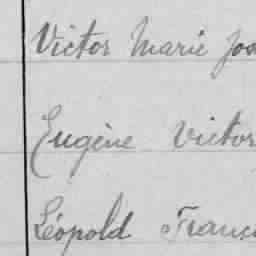 Victor Marie Jos
Eugène Victor
Léopold Franc